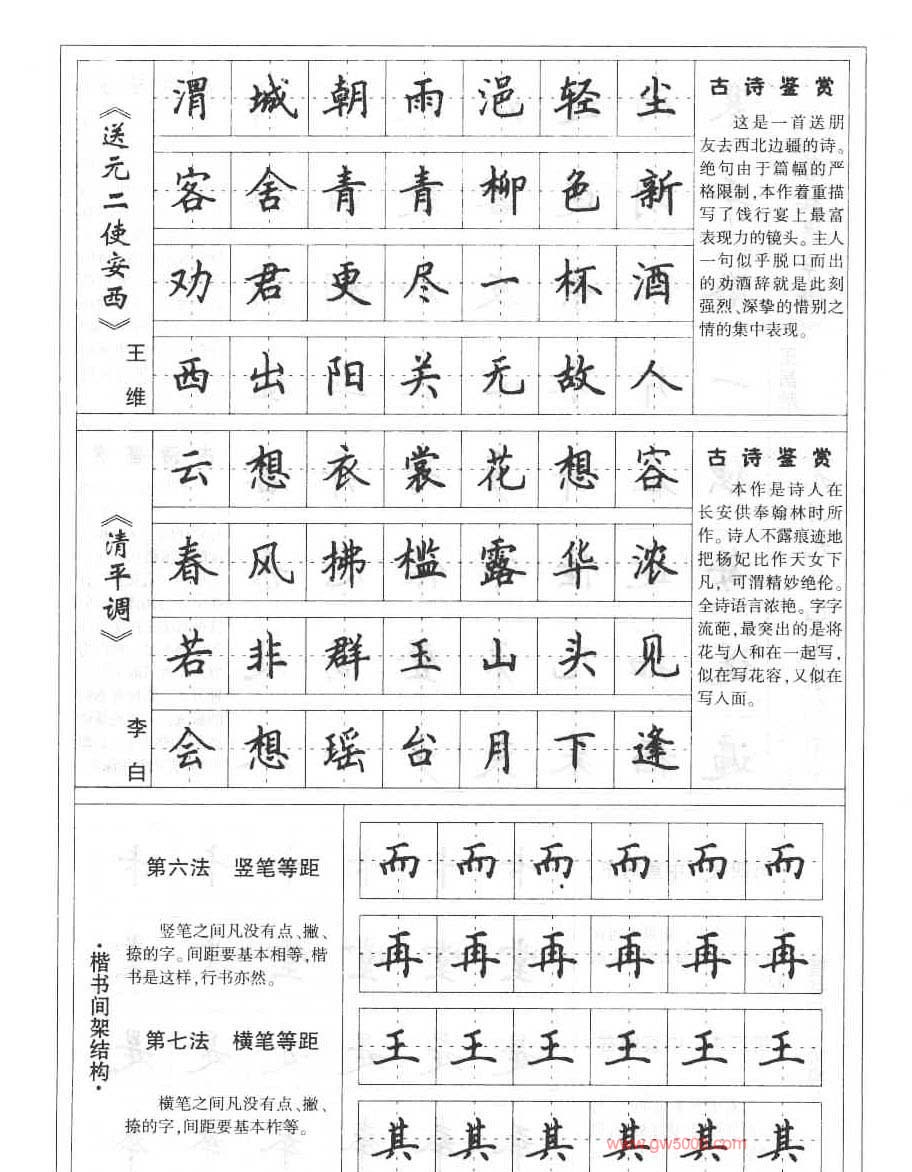 《送元二使安西》
王维
渭城朝雨浥轻尘
客舍青青柳色新
劝君更尽一杯酒
西出阳关无故人
古诗鉴赏
这是一首送朋
友去西北边疆的诗。
绝句由于篇幅的严
格限制，本作着重描
写了饯行宴上最富
表现力的镜头。主人
一句似乎脱口而出
的劝酒辞就是此刻
强烈、深挚的惜别之
情的集中表现。
《清平调》
李白
云想衣裳花想容
春风拂槛露华浓
若非群玉山头见
会想瑶台月下逢
古诗鉴赏
本作是诗人在
长安供奉翰林时所
作。诗人不露痕迹地
把杨妃比作天女下
凡，可渭精妙绝伦。
全诗语言浓艳。字字
流葩，最突出的是将
花与人和在一起写，
似在写花容，又似在
写人面。
·楷书间架结构·
第六法 竖笔等距
竖笔之间凡没有点、撇、
捺的字。间距要基本相等，楷
书是这样，行书亦然。
第七法 横笔等距
横笔之间凡没有点、撇、
捺的字，间距要基本柞等。
而而而而而而
再再再再再再
王王王王王王
其其其其其其